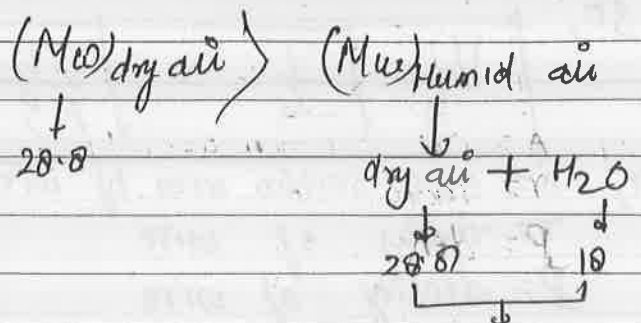 (Mw)dry air > (Mw)Humid air
28.8
dry air + H2O
28.8 18